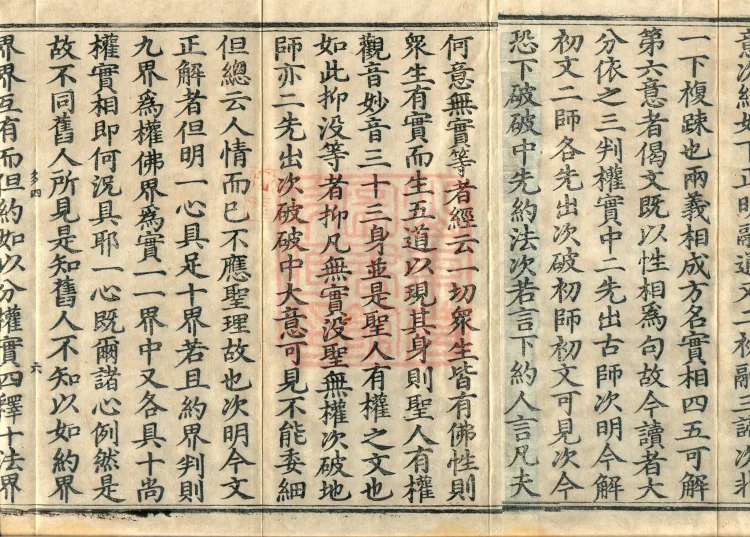 意次總如下正明融文二初融三諦次非
一下複踈也兩義相成方名實相四五可解
第六意者偈文既以性相爲句故今讀者大
分依之三判權實中二先出古師次明今解
初文二師各先出次破初師初文可見次今
恐下破破中先約法次若言下約人言凡夫
何意無實等者經云一切衆生皆有佛性則
衆生有實而生五道以現其身則聖人有權
觀音妙音三十三身並是聖人有權之文也
如此抑没等者抑凡無實没聖無權次破地
師亦二先出次破破中大意可見不能委細
但總云人情而已不應聖理故也次明今文
正解者但明一心具足十界若且約界判則
九界爲權佛界爲實一一界中又各具十尚
權實相即何況具耶一心既爾諸心例然是
故不同舊人所見是知舊人不知以如約界
四 六
界界互有而但約如以分權實四釋十法界